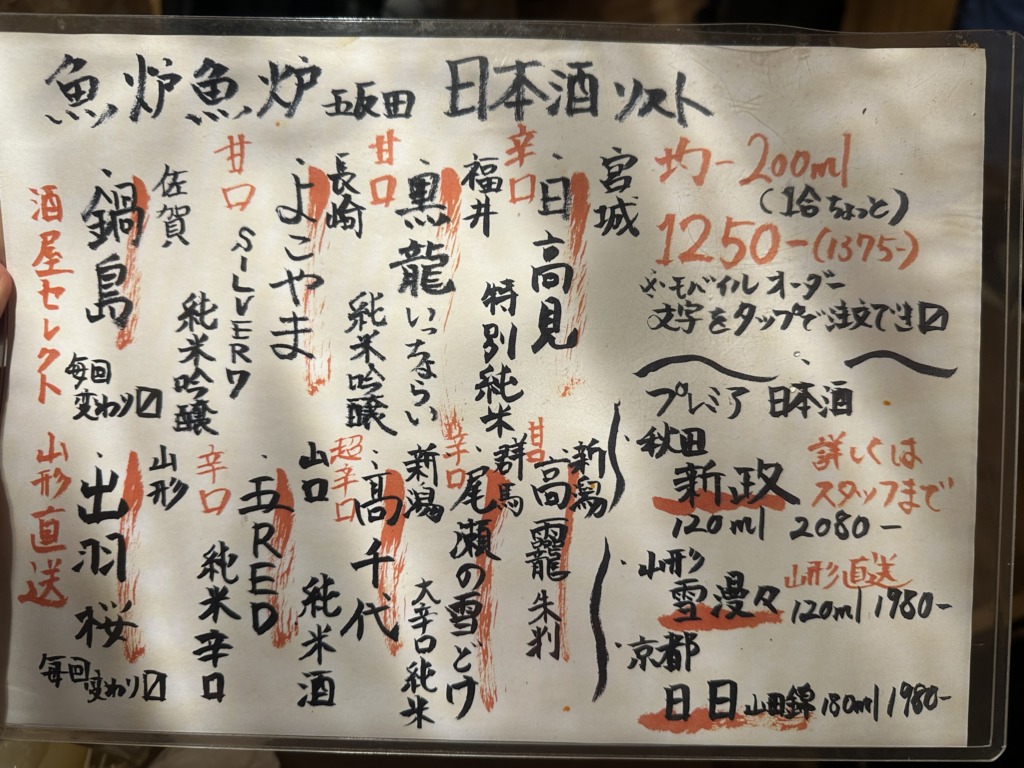 魚炉魚炉 五反田 日本酒リスト
均一200ml
(1合ちょっと)
1250-(1375-)
※モバイルオーダー
文字をタップで注文でき〼
プレミア 日本酒
秋田
新政
詳しくは
スタッフまで
120ml 2080-
山形
雪漫々
山形直送
120ml 1980-
京都
日日 山田錦 180ml 1980-
宮城
・日高見
辛口
特別純米
福井
・黒龍
いっちょらい
甘口
純米吟醸
長崎
・よこやま
SILVER7
甘口
純米吟醸
佐賀
・鍋島
毎回
変わり〼
酒屋セレクト
新潟
・高龗
朱判
甘口
群馬
・尾瀬の雪どけ
辛口
大辛口純米
新潟
・高千代
超辛口
純米酒
山口
・五RED
辛口
純米辛口
山形
・出羽桜
毎回
変わり〼
山形直送